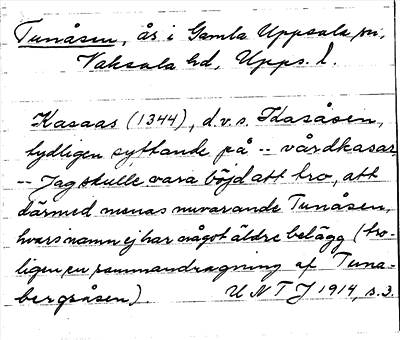 Tunåsen, ås i Gamla Uppsala sn,
Vaksala hd, Upps. l.
Kasaas (1344), d.v.s. Kasåsen,
tydligen syftande på -- vårdkasar
-- Jag skulle vara böjd att tro, att
därmed menas nuvarande Tunåsen,
hvars namn ej har något äldre belägg (tro-
ligen en sammandragning af Tuna-
bergsåsen). UNTJ 1914, s. 3.